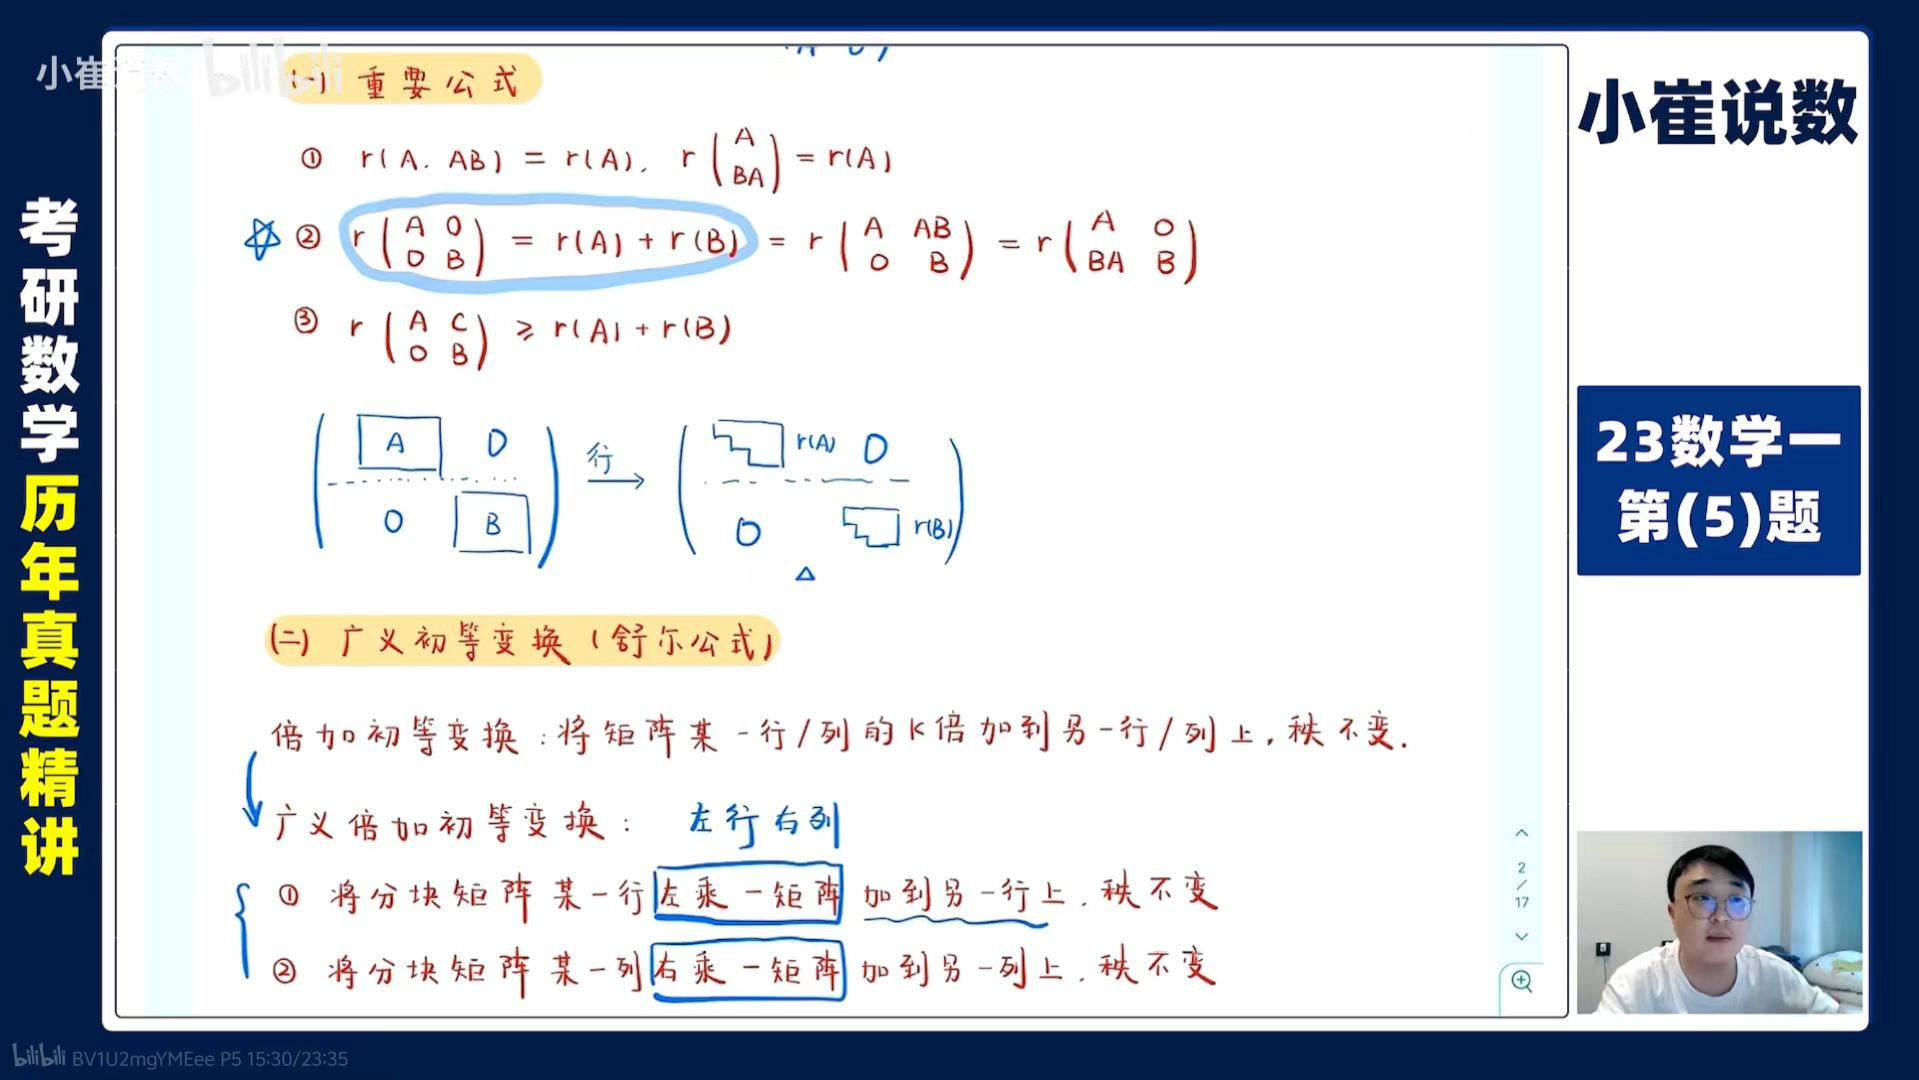 小崔说数 bilibili
(一) 重要公式
① r(A. AB) = r(A), r(A BA) = r(A)
② r(A O O B) = r(A) + r(B) = r(A AB O B) = r(A O BA B)
③ r(A C O B) ≥ r(A) + r(B)
(A O O B) 行→ (r(A) O O r(B))
△
(二) 广义初等变换(舒尔公式)
倍加初等变换:将矩阵某一行/列的K倍加到另一行/列上,秩不变.
广义倍加初等变换: 左行右列
① 将分块矩阵某一行左乘一矩阵 加到另一行上,秩不变
② 将分块矩阵某一列右乘一矩阵 加到另一列上,秩不变
2
/
17
考研数学历年真题精讲
小崔说数
23数学一
第(5)题
bilibili BV1U2mgYMEee P5 15:30/23:35